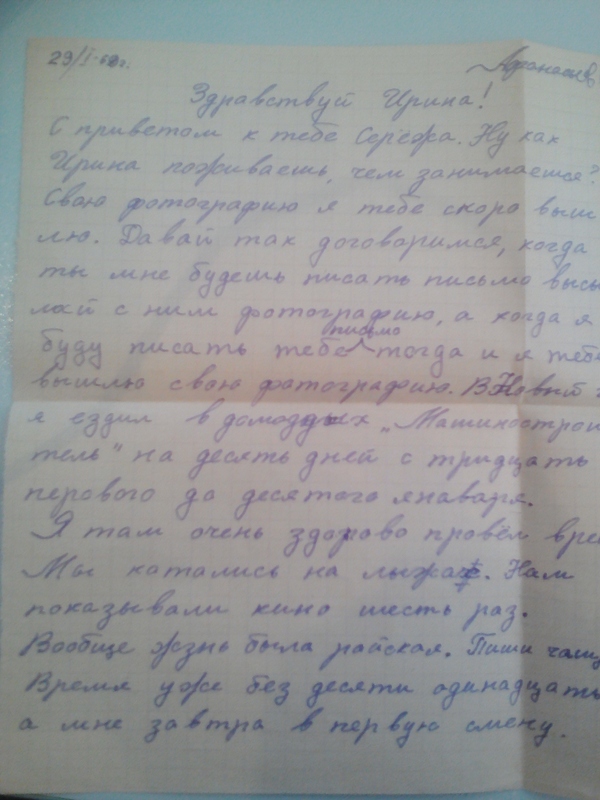 29/I-68г. Афанасьев
Здравствуй Ирина!
С приветом к тебе Серёжа. Ну как
Ирина поживаешь, чем занимаешся?
Свою фотографию я тебе скоро выш
лю. Давай так договаримся, когда
ты мне будешь писать письмо высы
лай с ним фотографию, а когда я
письмо
буду писать тебе тогда и я тебе
вышлю свою фотографию. В Новый
я ездил в дом отдых „Машинострои
тель" на десять дней с тридцать
перового до десятого янаваря.
Я там очень здорово провём вре
Мы катались на лыжах. Нам
показывали кино шесть раз.
Вообще жзнь была райская. Пиши чащ
Время уже без десяти одинадцать
а мне завтра в первую смену.